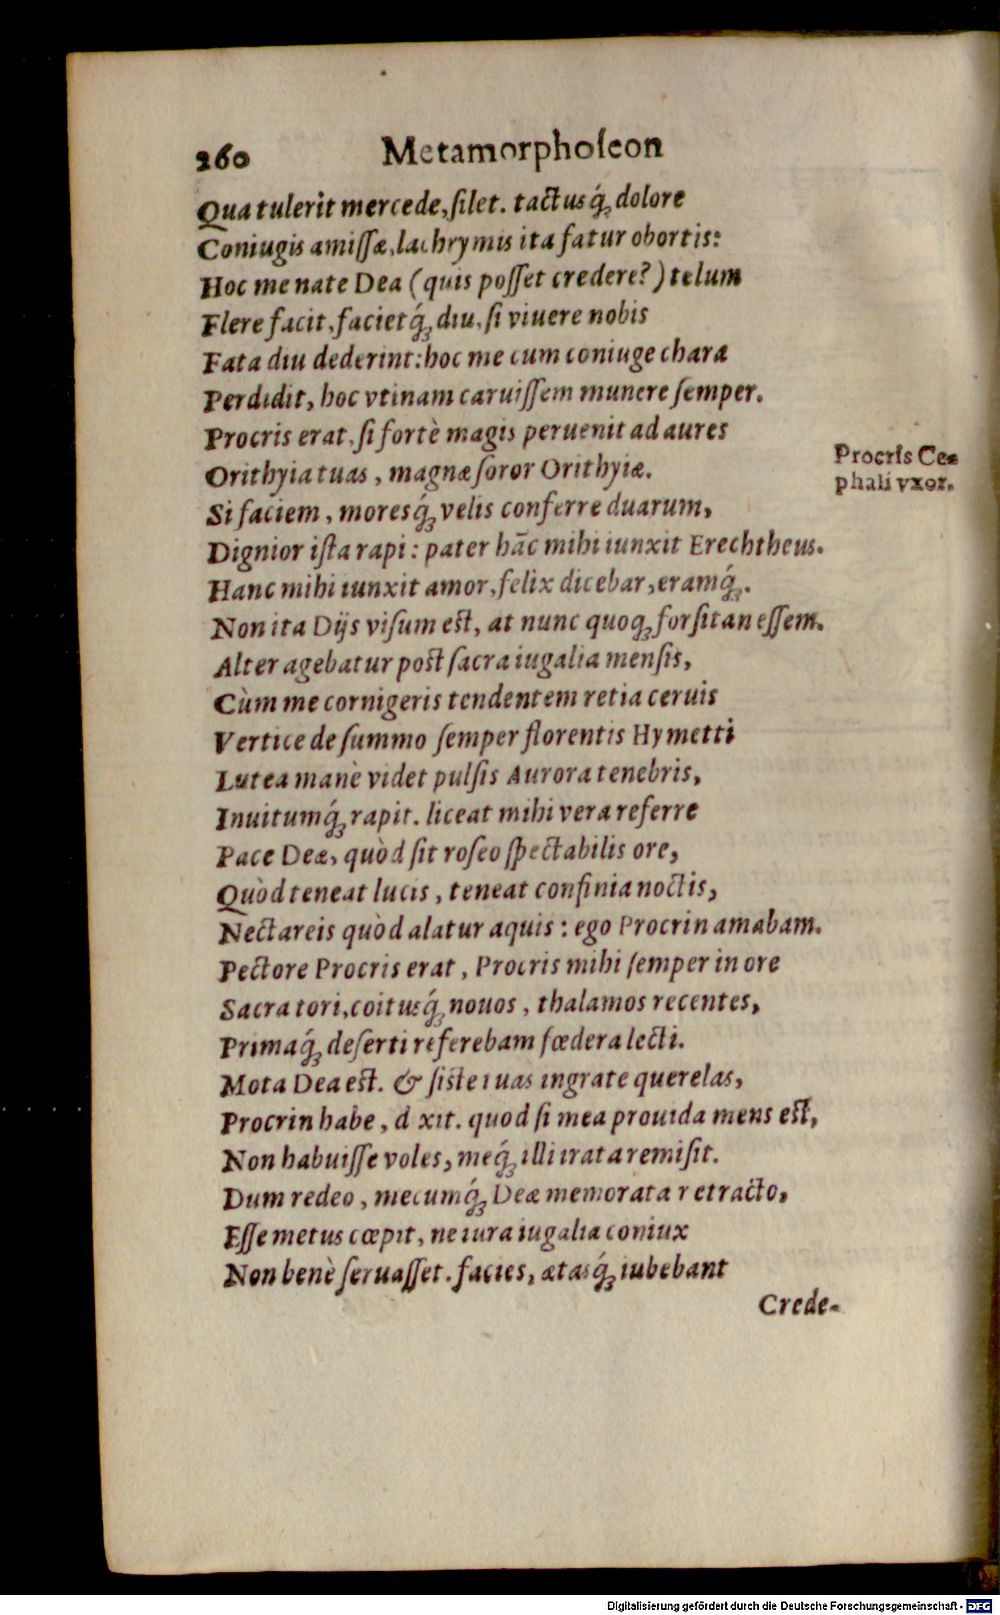 260 Metamorphoſeon
Qua tulerit mercede, ſilet. tactusq́ꝫ dolore
Coniugis amiſſæ, lachrymis ita fatur obortis:
Hoc me nate Dea (quis poſſet credere?) telum
Flere facit, facietq́ꝫ diu, ſi viuere nobis
Fata diu dederint: hoc me cum coniuge chara
Perdidit, hoc vtinam caruiſſem munere ſemper.
Procris erat, ſi fortè magis peruenit ad aures
Orithyia tuas, magnæ ſoror Orithyiæ.
Procris Ce-
phali vxor.
Si faciem, moresq́ꝫ velis conferre duarum,
Dignior iſta rapi: pater hãc mihi iunxit Erechtheus.
Hanc mihi iunxit amor, felix dicebar, eramq́ꝫ.
Non ita Dijs viſum eſt, at nunc quoqꝫ forſitan eſſem.
Alter agebatur poſt ſacra iugalia menſis,
Cùm me cornigeris tendentem retia ceruis
Vertice de ſummo ſemper florentis Hymetti
Lutea manè videt pulſis Aurora tenebris,
Inuitumq́ꝫ rapit. liceat mihi vera referre
Pace Deæ, quòd ſit roſeo ſpectabilis ore,
Quòd teneat lucis, teneat confinia noctis,
Nectareis quòd alatur aquis: ego Procrin amabam.
Pectore Procris erat, Procris mihi ſemper in ore
Sacra tori, coitusq́ꝫ nouos, thalamos recentes,
Primaq́ꝫ deſerti referebam fœdera lecti.
Mota Dea eſt. & ſiſte tuas ingrate querelas,
Procrin habe, d xit. quod ſi mea prouida mens eſt,
Non habuiſſe voles, meq́ꝫ illi irata remiſit.
Dum redeo, mecumq́ꝫ Deæ memorata retracto,
Eſſe metus cœpit, ne iura iugalia coniux
Non benè ſeruaſſet. facies, ætasq́ꝫ iubebant
Crede-
Digitalisierung gefördert durch die Deutsche Forschungsgemeinschaft - DFG